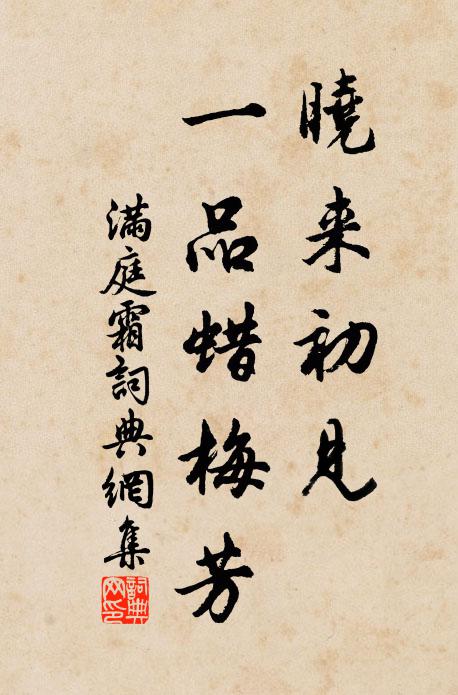 曉来初見
一品蜡梅芳
滿庭霜詞典網集
詞典网印